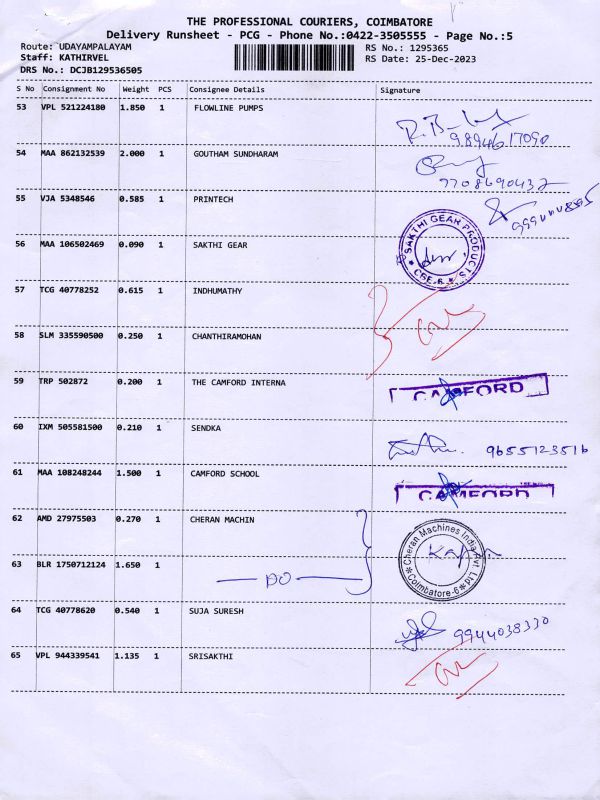 THE PROFESSIONAL COURIERS, COIMBATORE
Delivery Runsheet - PCG - Phone No.:0422-3505555 - Page No.:5
Route: UDAYAMPALAYAM RS No.: 1295365
Staff: KATHIRVEL RS Date: 25-Dec-2023
DRS No.: DCJB129536505
S No Consignment No Weight PCS Consignee Details Signature
53 VPL 521224180 1.850 1 FLOWLINE PUMPS
9894617090
54 MAA 862132539 2.000 1 GOUTHAM SUNDHARAM
9708690432
55 VJA 5348546 0.585 1 PRINTECH
56 MAA 106502469 0.090 1 SAKTHI GEAR
SAKTHI GEAR PRODUCTS
CBE-6
57 TCG 40778252 0.615 1 INDHUMATHY
58 SLM 335590500 0.250 1 CHANTHIRAMOHAN
59 TRP 502872 0.200 1 THE CAMFORD INTERNA
CAMFORD
60 IXM 505581500 0.210 1 SENDKA
9655123516
61 MAA 108248244 1.500 1 CAMFORD SCHOOL
CAMFORD
62 AMD 27975503 0.270 1 CHERAN MACHIN
Cheran Machines India Pvt. Ltd.
Coimbatore-6
63 BLR 1750712124 1.650 1
DO
64 TCG 40778620 0.540 1 SUJA SURESH
9944038330
65 VPL 944339541 1.135 1 SRISAKTHI